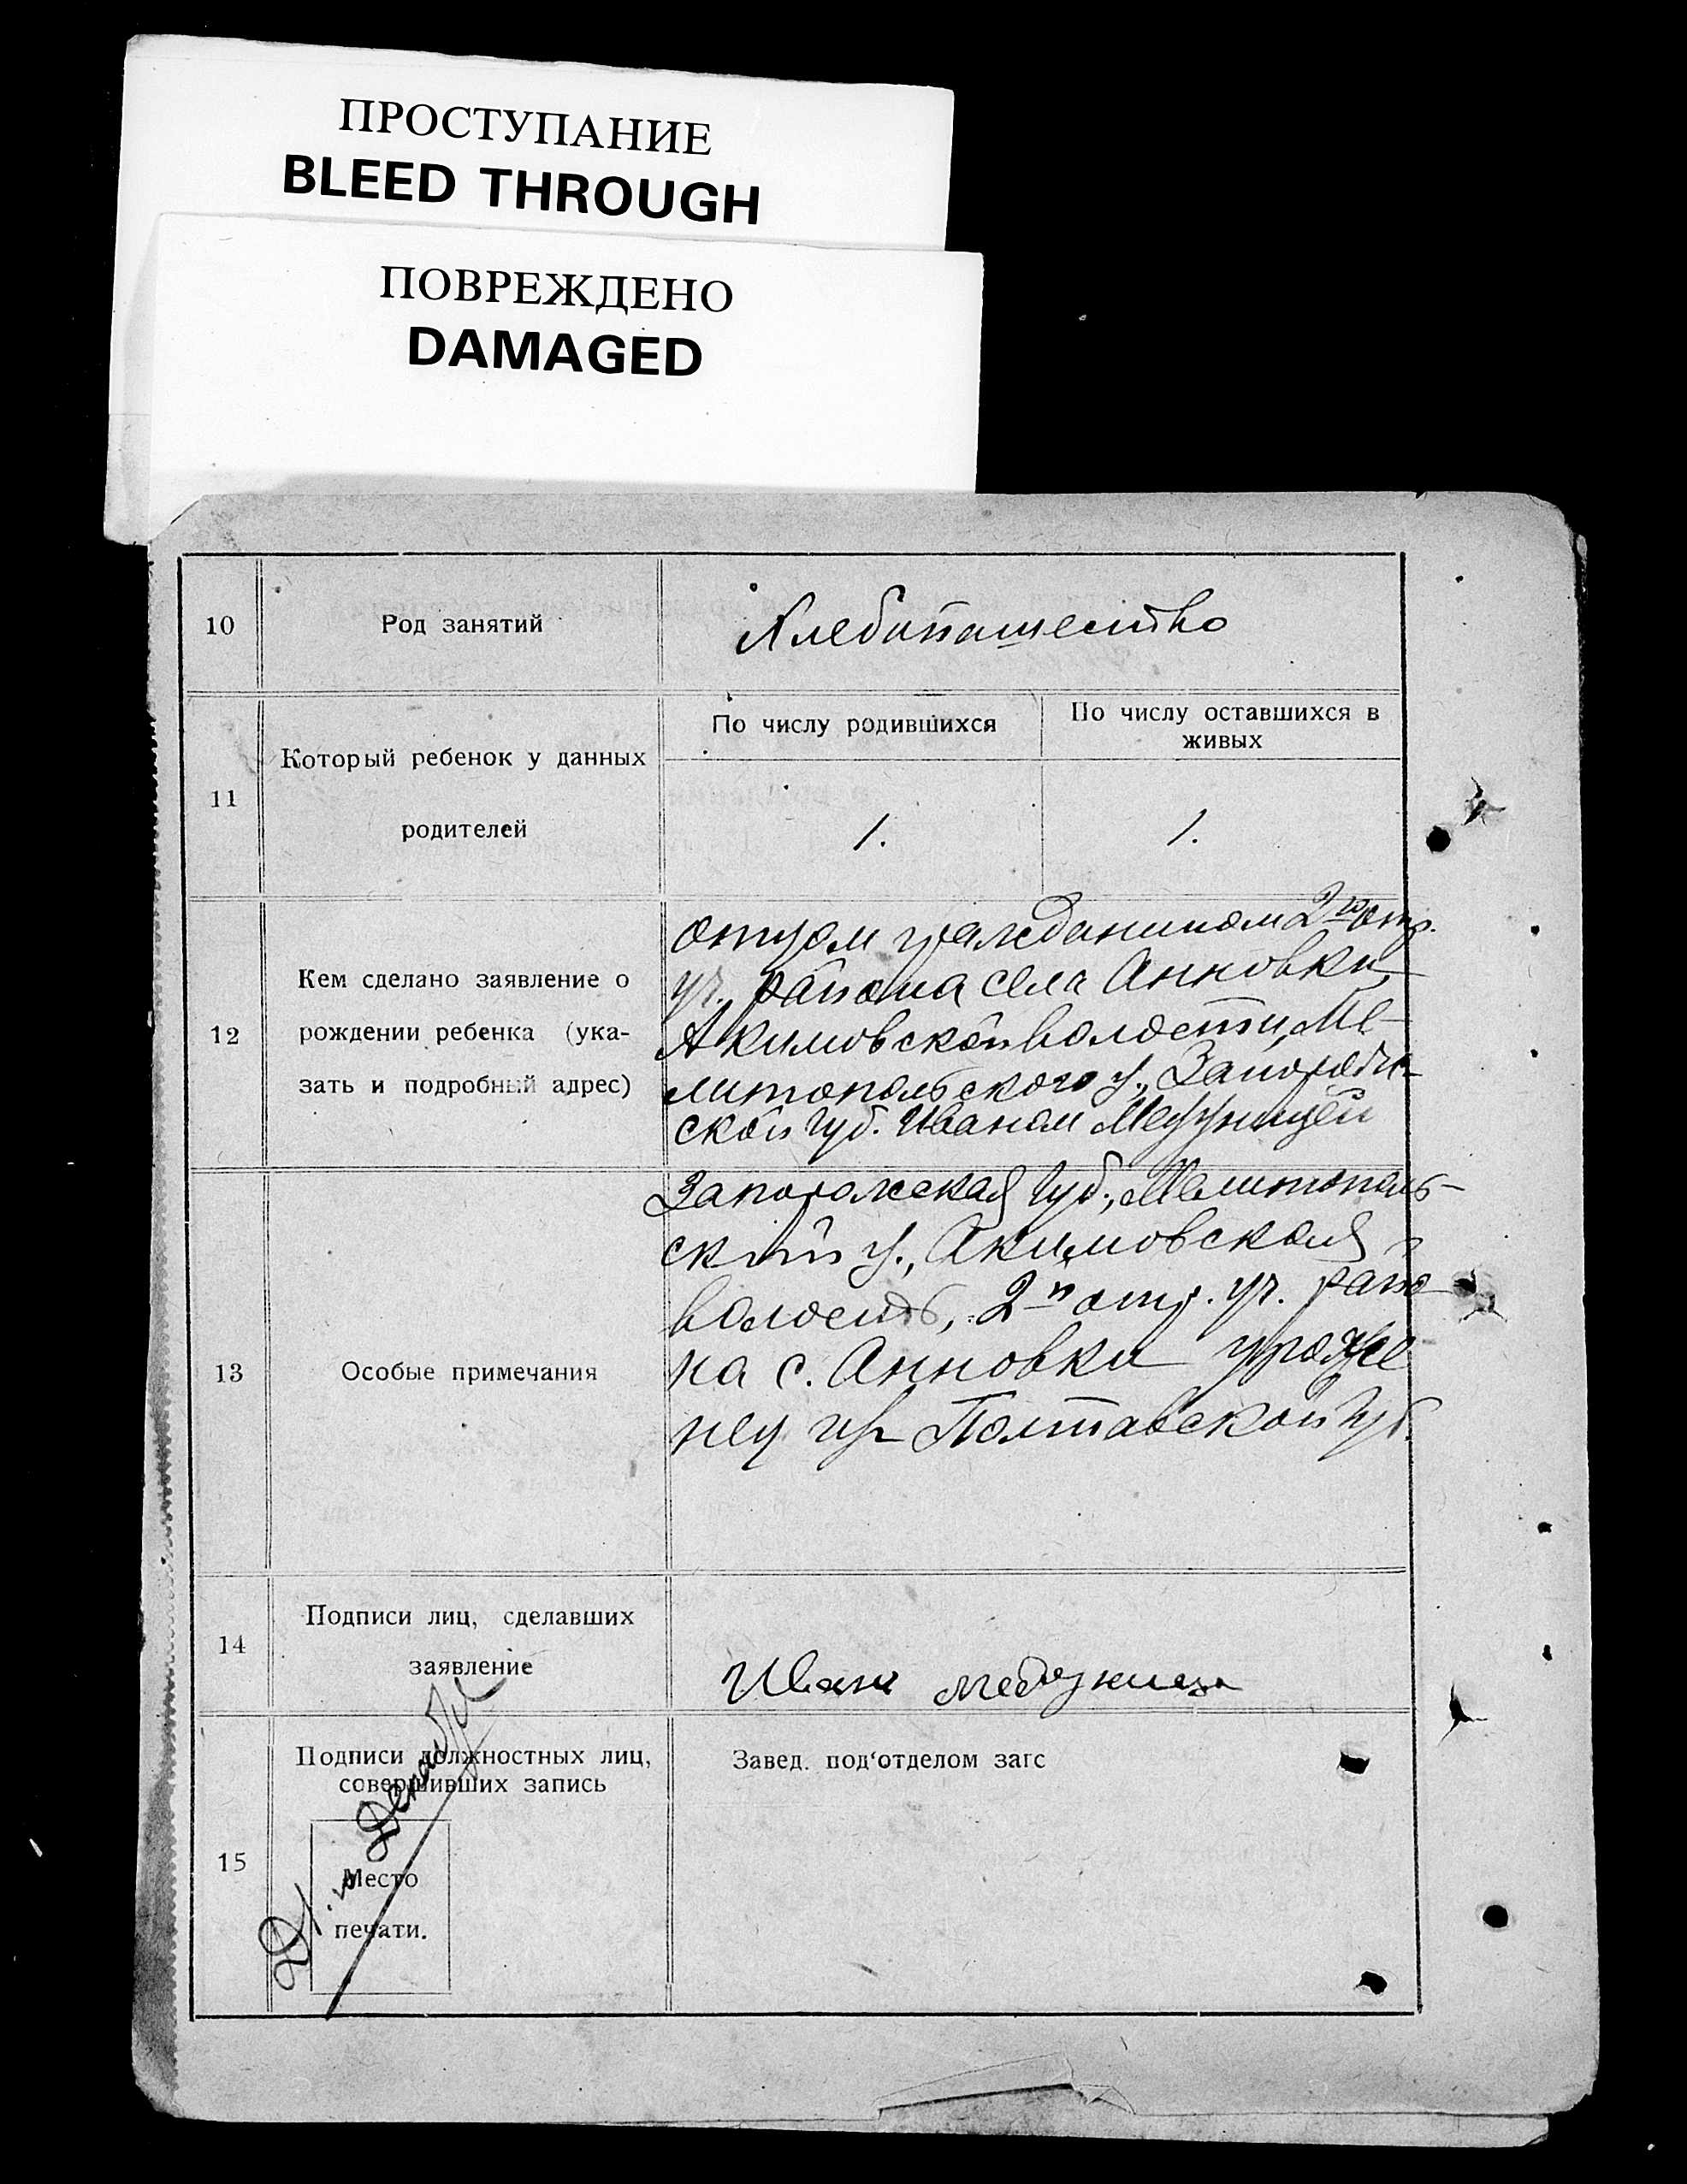 ПРОСТУПАНИЕ
BLEED THROUGH
ПОВРЕЖДЕНО
DAMAGED
10
Род занятий
Хлебопашество
11
Который ребенок у данных
родителей
По числу родившихся
По числу оставшихся в
живых
1.
1.
12
Кем сделано заявление о
рождении ребенка (ука-
зать и подробный адрес)
отцом гражданином 2го отр.
уч. района села Анновки,
Акимовской волости, Ме-
литопольского у., Запорож-
ской губ. Иваном
13
Особые примечания
Запорожская губ., Мелитополь-
ский у., Акимовская
волость, 2й отр. уч. райо-
на с. Анновки уроже
нец из Полтавской губ.
14
Подписи лиц, сделавших
заявление
Иван Медяница
15
Подписи должностных лиц,
совершивших запись
Место
печати.
Завед. под‘отделом загс